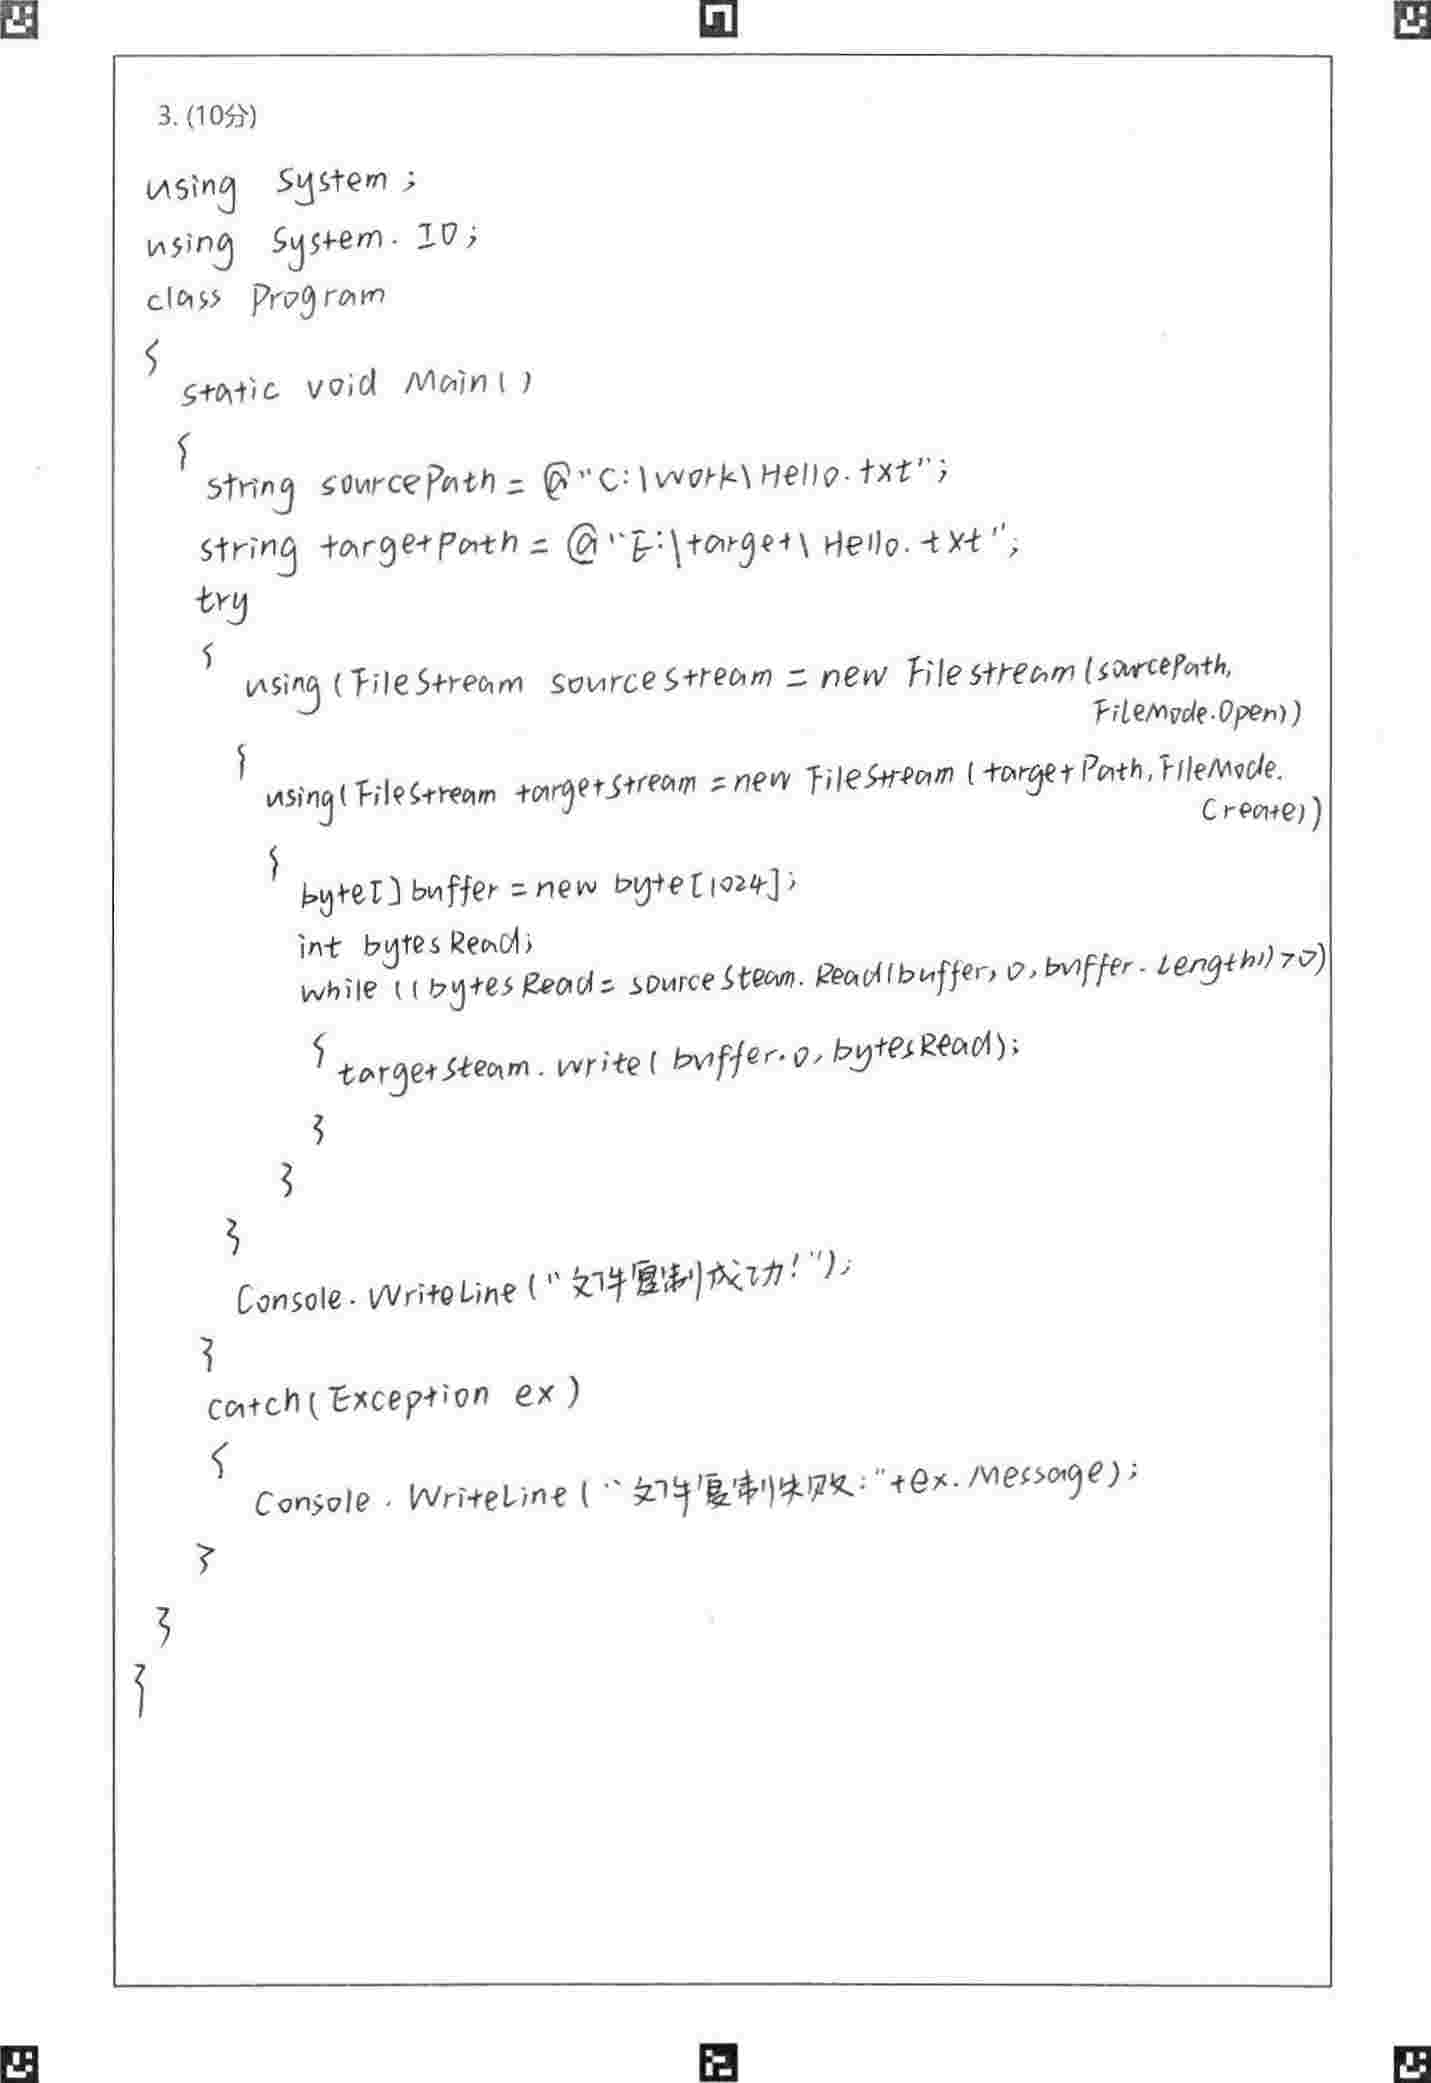 3. (10分)
using System;
using System.IO;
class Program
{
static void Main()
{
string sourcePath = @"C:\Work\Hello.txt";
string targetPath = @"E:\target\Hello.txt";
try
{
using(FileStream sourceStream = new Filestream(sourcePath,
FileMode.Open))
{
using(FileStream targetStream = new FileStream(targetPath, FileMode.
Create))
{
byte[] buffer = new byte[1024];
int bytesRead;
while ((bytesRead = sourceSteam.Read(buffer, 0, buffer.Length)) > 0)
{ targetSteam.write(buffer.0, bytesRead);
}
}
}
Console.WriteLine("文件复制成功!");
}
catch(Exception ex)
{
Console.WriteLine("文件复制失败:"+ex.Message);
}
}
}